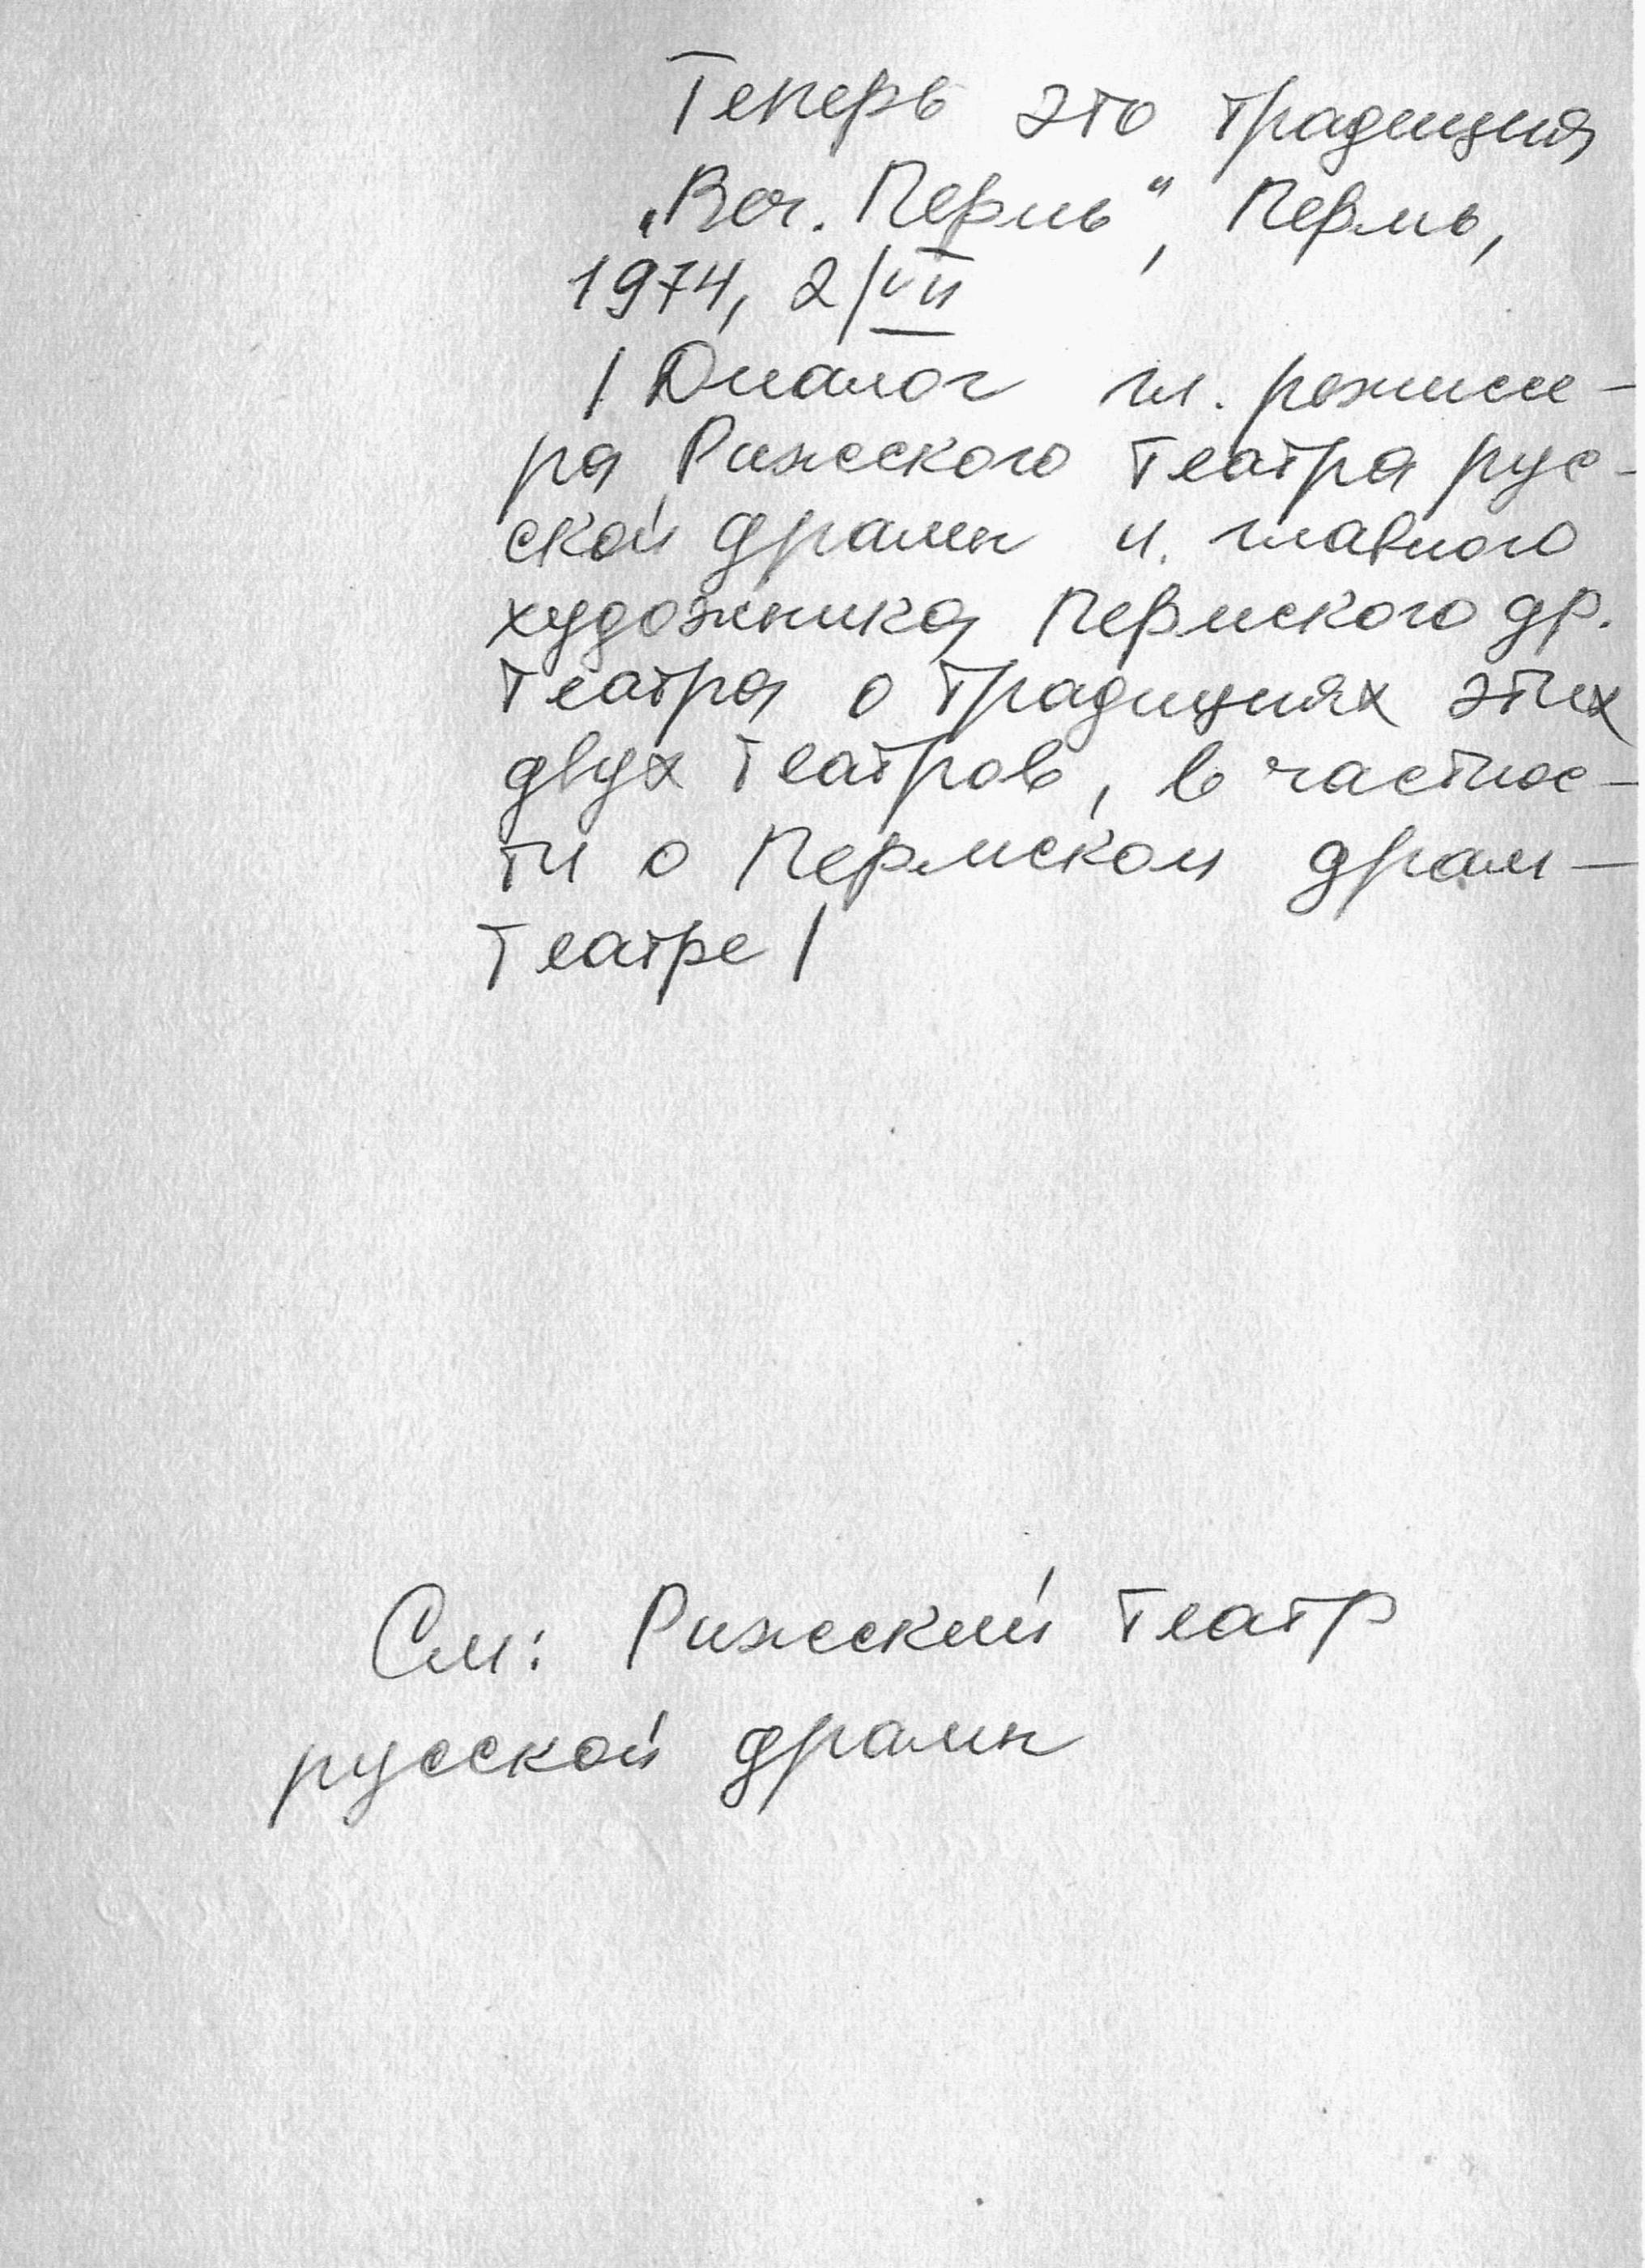 Теперь это традиция
„Веч. Пермь", Пермь,
1974, 2/VII
/Диалог гл. режиссе-
ра Рижского театра рус-
ской драмы и главного
художника Пермского др.
театра о традициях этих
двух театров, в частнос-
ти о Пермском драм-
театре/
См: Рижский театр
русской драмы